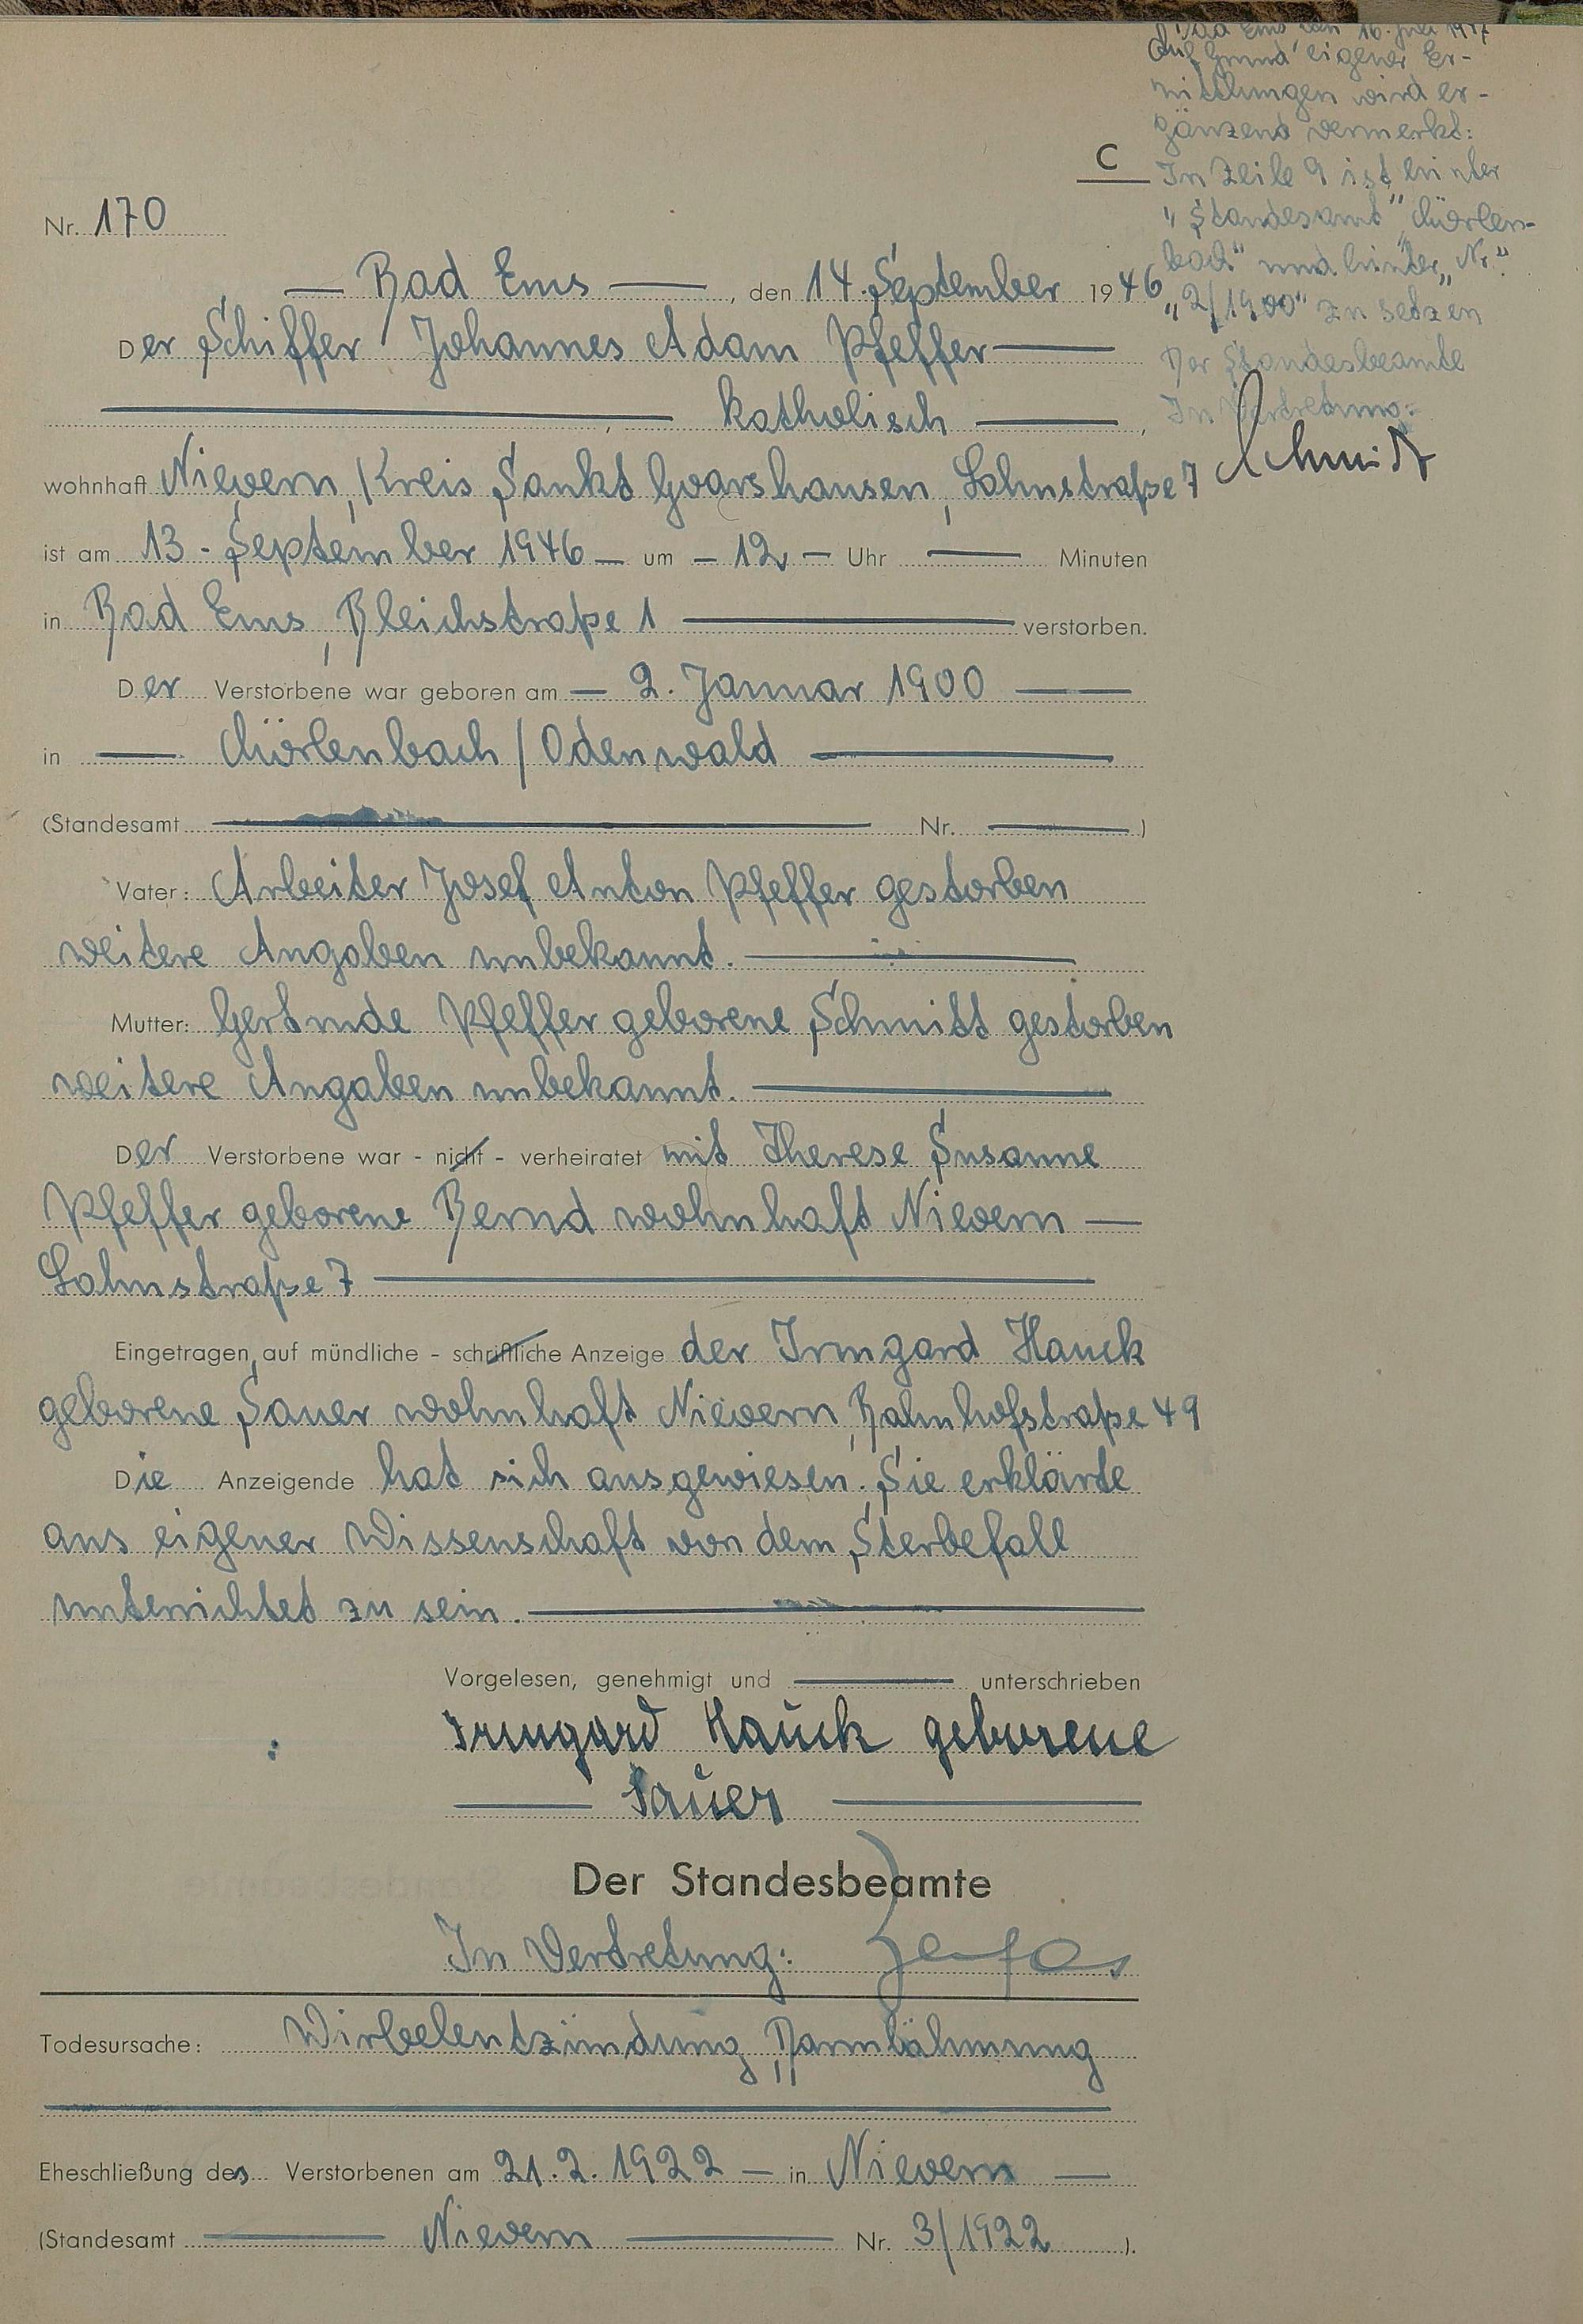 Bad Ems den 16. Juli 1947
Auf Grund eigener Er-
mittlungen wird er-
gänzend vermerkt:
In Zeile 9 ist hinter
"Standesamt" "Mörlen-
bach" und hinter "Nr."
"2/1900" zu setzen
Der Standesbeamte
In Vertretung:
Schmidt
C
Nr. 170
— Bad Ems —, den 14. September 1946
Der Schiffer Johannes Adam Pfeffer —
—, katholisch —,
wohnhaft Nievern, Kreis Sankt Goarshausen, Lahnstraße 7
ist am 13. September 1946 — um — 12 — Uhr — Minuten
in Bad Ems, Bleichstraße 1 — verstorben.
Der Verstorbene war geboren am — 2. Januar 1900 —
in — Mörlenbach / Odenwald —
(Standesamt — Nr. —)
Vater: Arbeiter Josef Anton Pfeffer gestorben
weitere Angaben unbekannt. —
Mutter: Gertrude Pfeffer geborene Schmitt gestorben
weitere Angaben unbekannt. —
Der Verstorbene war - nicht - verheiratet mit Therese Susanne
Pfeffer geborene Bernd wohnhaft Nievern —
Lahnstraße 7 —
Eingetragen auf mündliche - schriftliche Anzeige der Irmgard Hauck
geborene Sauer wohnhaft Nievern, Bahnhofstraße 49
Die Anzeigende hat sich ausgewiesen. Sie erklärte
aus eigener Wissenschaft von dem Sterbefall
unterrichtet zu sein. —
Vorgelesen, genehmigt und — unterschrieben
Irmgard Hauck geborene
— Sauer —
Der Standesbeamte
In Vertretung:
Todesursache: Wirbelentzündung, Darmlähmung
Eheschließung des Verstorbenen am 21.2.1922 — in Nievern —
(Standesamt — Nievern — Nr. 3/1922).